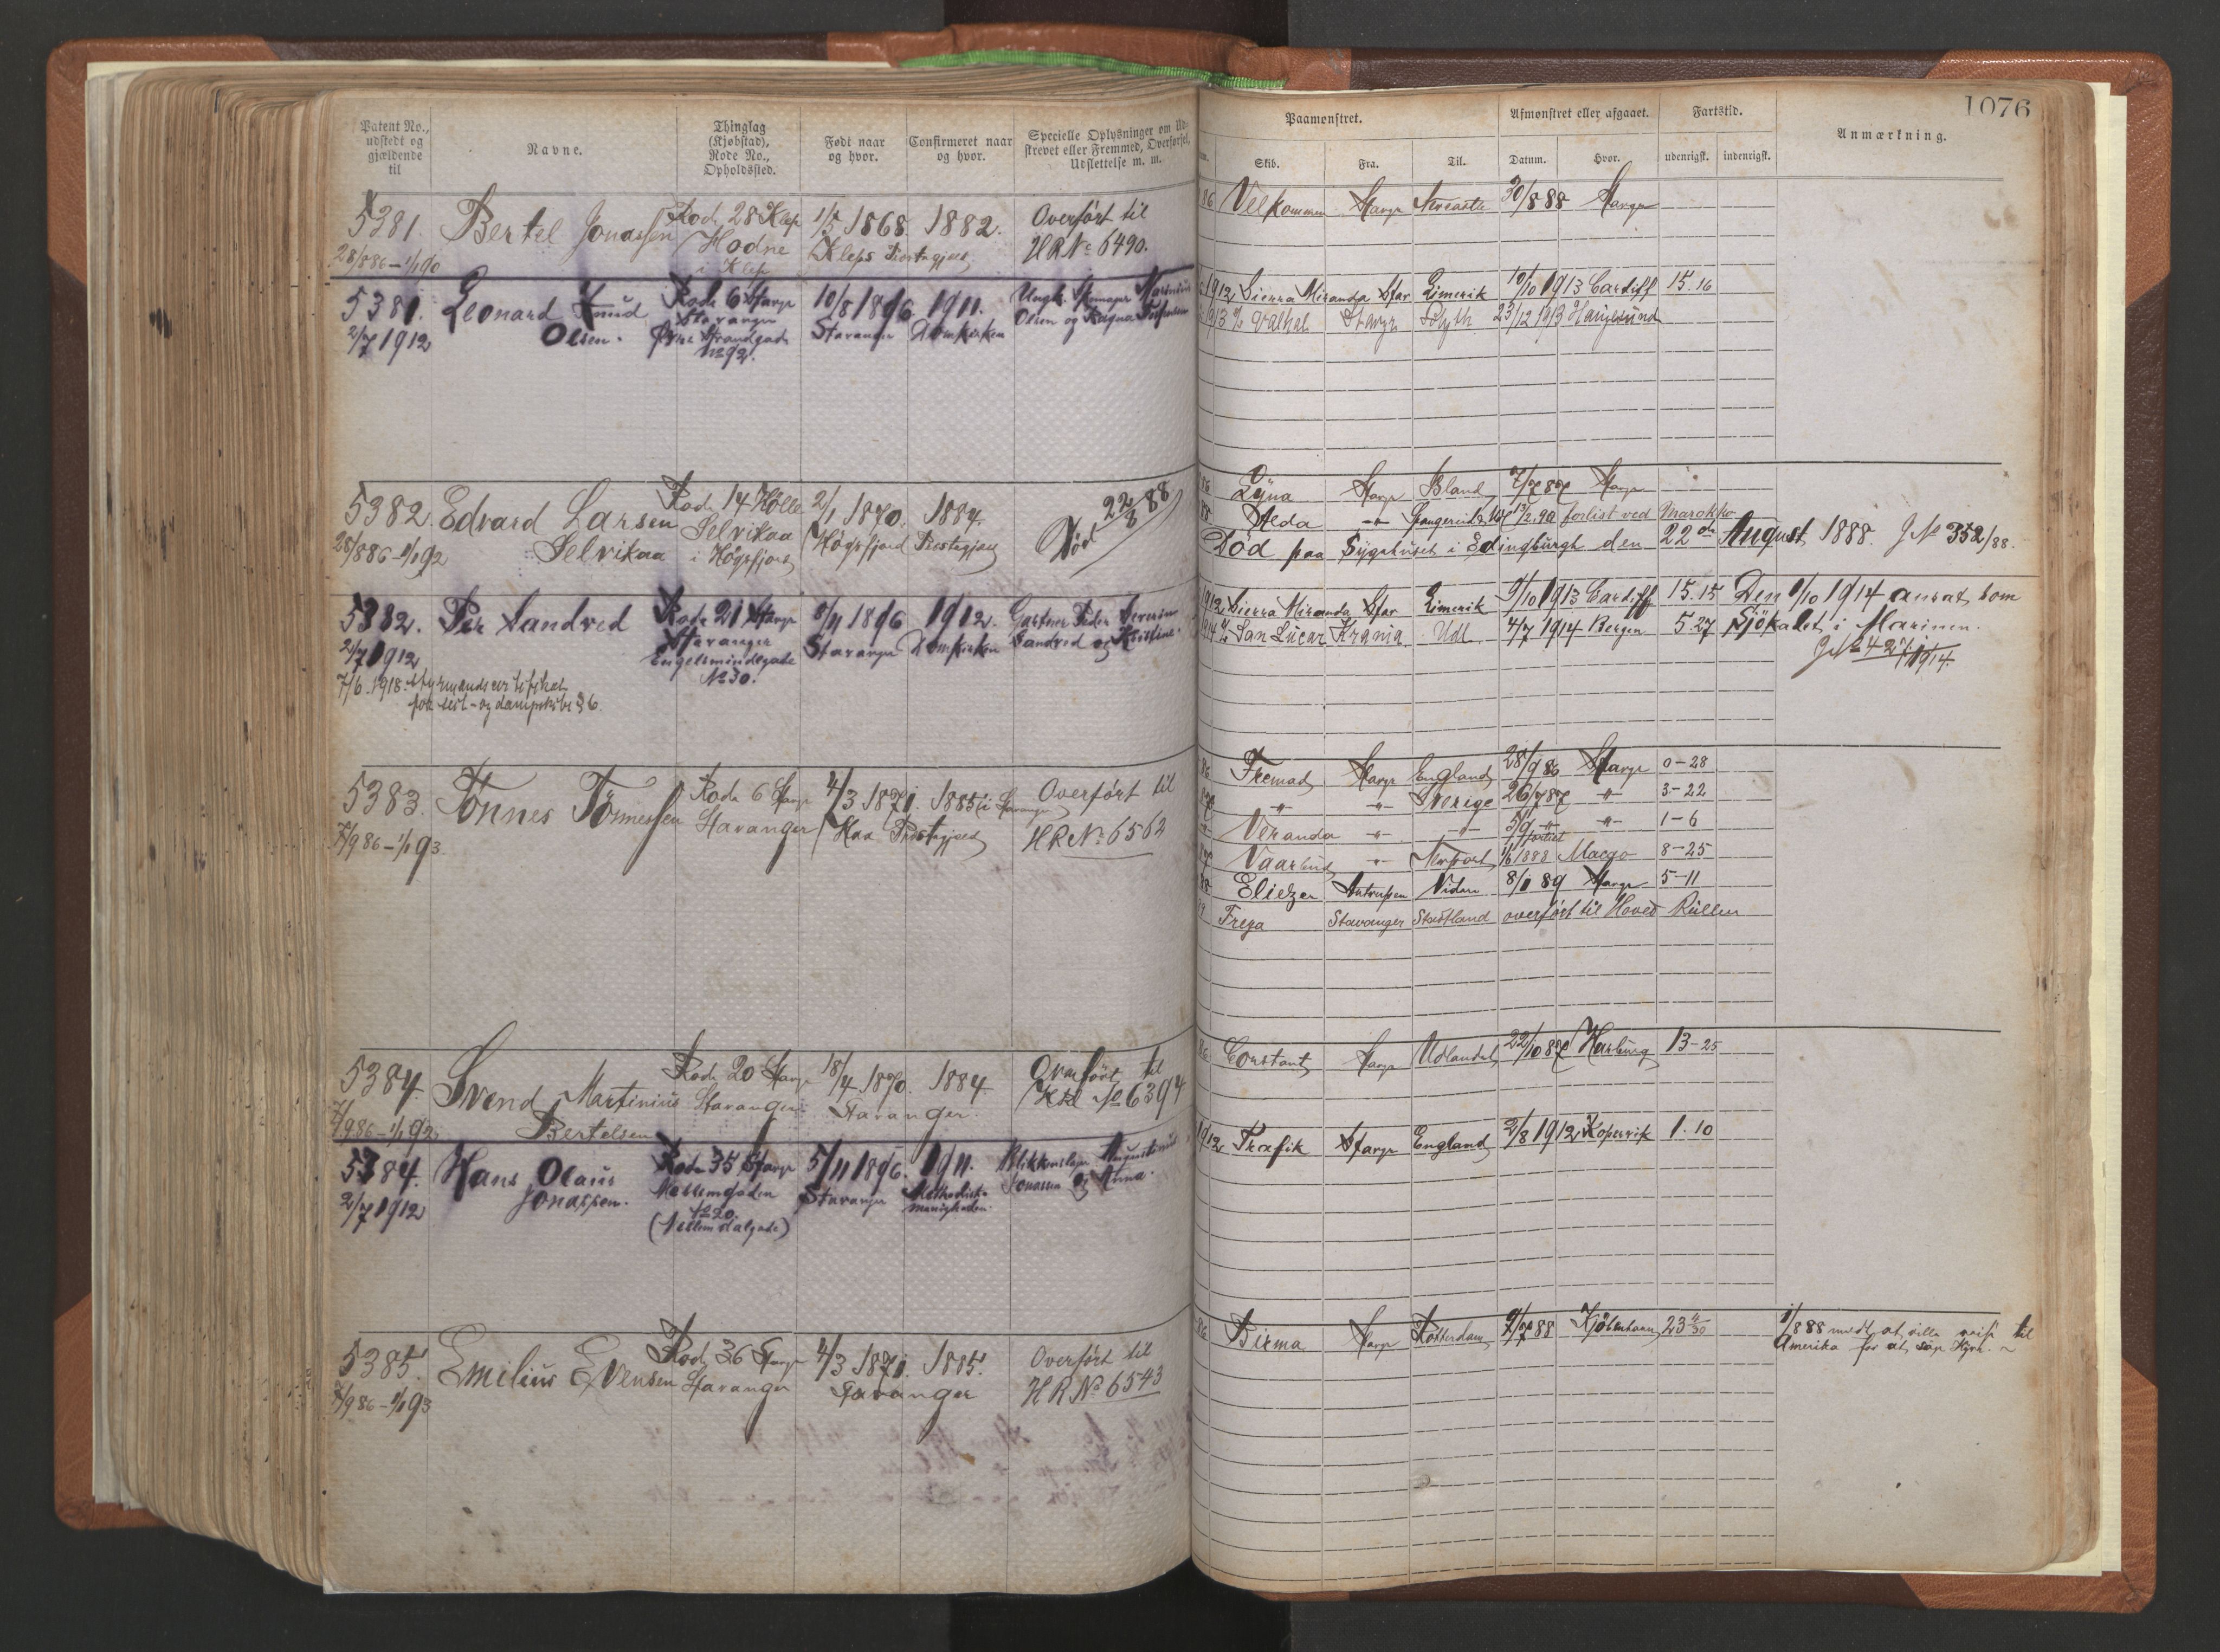 Patent No.,
udstedt og
gjældende
til
Navne.
Thinglag
(Kjøbstad),
Rode No.,
Opholdssted.
Født naar
og hvor.
Confirmeret naar
og hvor.
Specielle Oplysninger om Ud-
skrevet eller Fremmed, Overførsel,
Udslettelse m. m.
5381. Bertel Jonassen Rode 28 Klep 1/5 1868. 1882. Overført til
28/886-1/190 Hodne Kleps Prestegjeld HR No 6490.
i Klep
5381. Leonard Knud Rode 6 Stavgr 10/8 1896. 1911.
2/7 1912 Olsen. Stavanger Stavanger Domkirken Olsen og
Øvre Strandgade
No 92.
5382. Edvard Larsen Rode 14 Hølle 2/1 1870. 1884. Død 22/8 88
28/886-1/192 Selvikaa Selvikaa Høgsfjord Prestegjeld
i Høgsfjord
5382. Per Sandved Rode 21 Stavgr 8/11 1896 1912. Gartner Peder Severin
2/7 1912 Stavanger Stavanger Domkirken Sandved og Kristine.
Engelsmindegade
No 30.
7/6-1918. Styrmandscertifikat
for seil- og dampskibe § 6.
5383. Tønnes Tønnessen Rode 6 Stavgr 4/3 1871. 1885 i Stavanger Overført til
7/986-1/193. Stavanger Prestegjeld HR No 6562
5384. Svend Martinius Rode 20 Stavgr 18/4 1870. 1884. Overført til
7/986-1/192 Bertelsen Stavanger Stavanger. HR No 6394
5384. Hans Olaus Rode 35 Stavgr 5/11 1896. 1911. Augustinus
2/7 1912 Jonassen. Stavanger Methodist- Jonassen og Anna.
No 20. menigheden.
5385. Emilius Evensen Rode 36 Stavgr 4/3 1871. 1885. Overført til
7/986-1/193 Stavanger Stavanger HR No 6543
1076
Paamønstret.
Afmønstret eller afgaaet.
Fartstid.
Anmærkning.
Skib.
Fra.
Til.
Datum.
Hvor.
udenrigsk.
indenrigsk.
86 Velkommen Stavgr Newcastle 30/8 88 Stavgr
1912 Sierra Miranda Stav Limerik 10/10 1913 Cardiff 15.16
1913 Valhal Stavgr Blyth 23/12 1913 Haugesund
86 Lyna Stavgr Island 7/7 87 Stavgr
88 Alda forlist ved Marokko
Død paa Sygehuset i Edingburgh den 22de August 1888. J No 352/88.
1912 Sierra Miranda Stav Limerik 9/10 1913 Cardiff 15.15 Den 1/10 1914 ansat som
1914 San Lucar Krania Udl. 4/7 1914 Bergen 5.27 Sjøkadet i Marinen.
J No 427/1914
86 Fremad Stavgr England 28/9 86 Stavgr 0-28
87 " " Sverige 26/7 87 " 3-22
" Veranda " 5/9 " " 1-6
forlist
87 Vaarbud " Newport 1/6 1888 8-25
88 Eliezer Antwerpen Viden 8/1 89 Stavgr 5-11
Freya Stavanger Skotland overført til Hoved Rullen
86 Constant Stavgr Udlandet 22/10 87 Harburg 13-25
1912 Trafik Stavgr England 2/8 1912 Kopervik 1.10
86 Birma Stavgr Rotterdam 9/7 88 Kjøbenhavn 23 1/888 at ville reise til
Amerika for at søge Hyre.